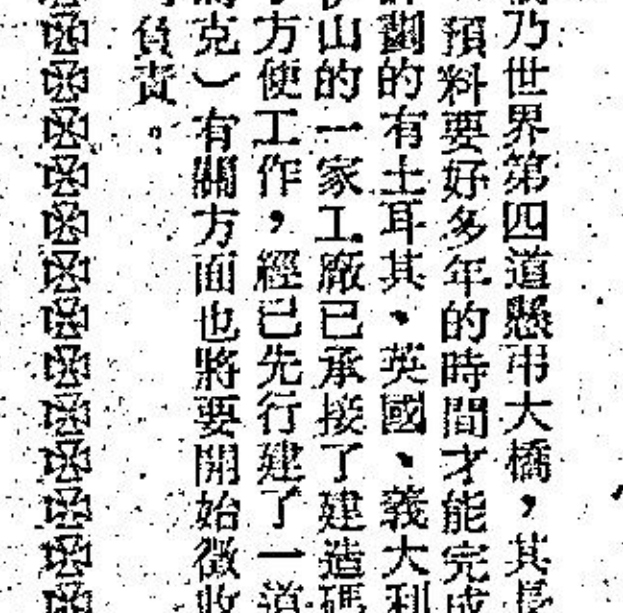 乃世界第四道懸吊大橋，其長
預料要好多年的時間才能完成
劃的有土耳其、英國、義大利
山的一家工廠已承接了建造碼
方便工作，經已先行建了一道
克）有關方面也將要開始徵收
負責。